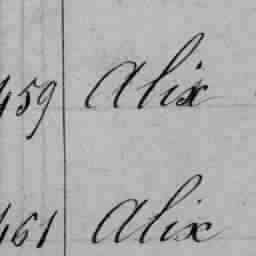 459 Alix
461 Alix